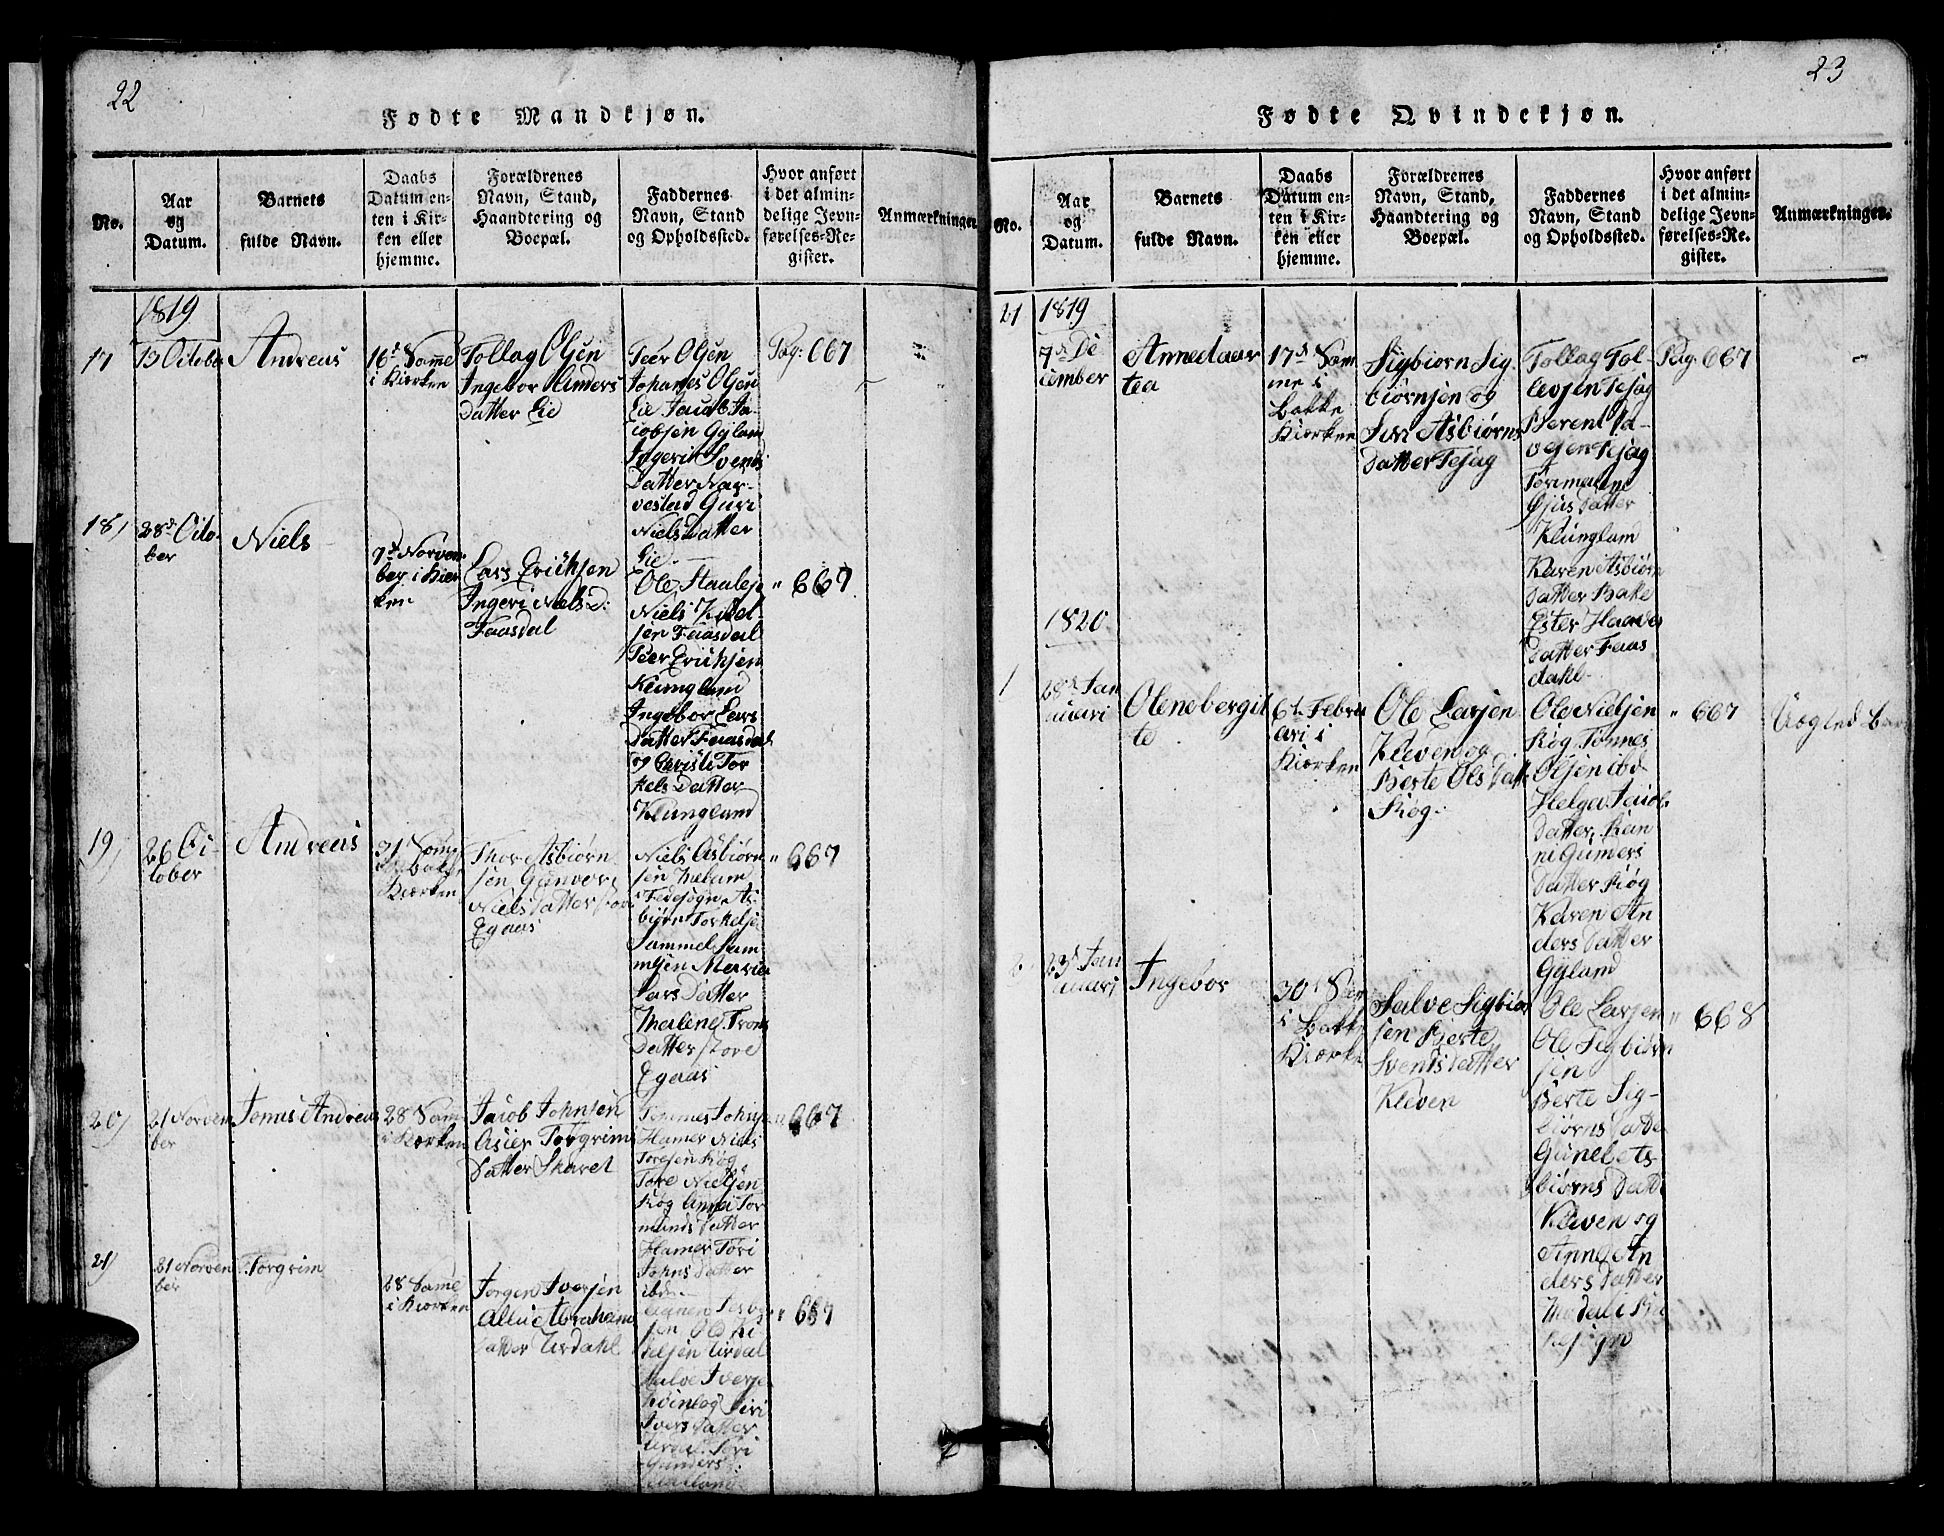 22
Fødte Mandkjøn.
No.
Aar
og
Datum.
Barnets
fulde Navn.
Daabs
Datum en-
ten i Kir-
ken eller
hjemme.
Forældrenes
Navn, Stand,
Haandtering og
Boepæl.
Faddernes
Navn, Stand
og Opholdssted.
Hvor anført
i det almin-
delige Jevn-
førelses-Re-
gister.
Anmærkninger.
1819
17
13 October
Andreas
16d Samme
i Kiorken
Tollag Olsen
Ingebor Anders
datter Lie
Peer Olsen
Johanes Olsen
Lie Jacob Ja-
cobsen Gyland
Ingeri Svends
Datter Rav-
vestad Guri
Niels datter
Lie
Pag. 667
18)
28d Octo-
ber
Niels
7d Norvem
ber i Kier
ken
Lars Erichsen
Ingeri Niels D:
Faasdal
Ole Staalese
Niels Kittel
sen Faasdal
Peer Erichsen
Klungland
Ingebor Lars
Datter Faasdal
og Christi Tor
kels Datter
Klungland
" 667
19)
26 Oc-
tober
Andreas
31 Same
Bakke
Kiorken
Thor Asbiørn
sen Gunvor
Niels datter store
Egaas
Niels Asbiørn
sen Meland
Fedesogn As-
biørn Torkelse
Sammel Sam-
melsen
Lars Datter
Malene Trons
Datter store
Egaas
" 667
20)
21 Norvem
ber
Jonas Andreas
28 Sam
i Kiorken
Jacob Johnsen
Asier Torgrims
Datter Skaret
Tommes Johnsen
Hamer Niels
Toresen Røg
Tore Nielsen
Røg Anna Tor
munds datter
Hamer Tori
Johns Datter
ibd.
" 667
21)
21 Norvem
ber
Torgrim
28 Same
i Kiorken
Jørgen Iversen
Alli Abraham
datter Urdahl
sen Ole Ki
telsen Urdal
Salve Iverse
Siri
Ivers Datter
Tori
Gunders
" 667
23
Fødte Qvindekjøn.
No.
Aar
og
Datum.
Barnets
fulde Navn.
Daabs
Datum en-
ten i Kir-
ken eller
hjemme.
Forældrenes
Navn, Stand,
Haandtering og
Boepæl.
Faddernes
Navn, Stand
og Opholdssted.
Hvor anført
i det almin-
delige Jevn-
førelses-Re-
gister.
Anmærkninger.
21
1819
7d De
cember
Annedaar
tea
17d Sam
me i
Bakke
Kiorken
Sigbiørn Sig
biørnsen og
Siri Asbiørns
datter Tesag
Tollag Tol-
levsen Tesag
Berent
vesen Tesag
Torimalene
Gjus Datter
Klungland
Karen Asbiørn
datter Bake
Ester Haavor
datter Faas
dahl
Pag. 667
1820
1
28d Jan
uari
Olenebergit
te
6t Febru
ari i
Kiorken
Ole Larsen
Kleven og
Berte Ols Datt
Røg.
Ole Nielsen
Røg Tønnes
Olsen ibd
Helga Jacob
datter, Ran
ni Guners
datter Røg
Karen An
ders datter
Gyland
" 667
Uægted Bar
2
23d Jan
uari
Ingebor
30d Sam
i Bakke
Kiorke
Salve Sigbiør
sen Berte
Svends datter
Kleven
Ole Larsen
Ole Sigbiørn
sen
Berte Sig-
biørns datte
Gunel As-
biørns Datt
Kleven og
Anne An
ders Datter
Modal i Ba
kesogn
" 668